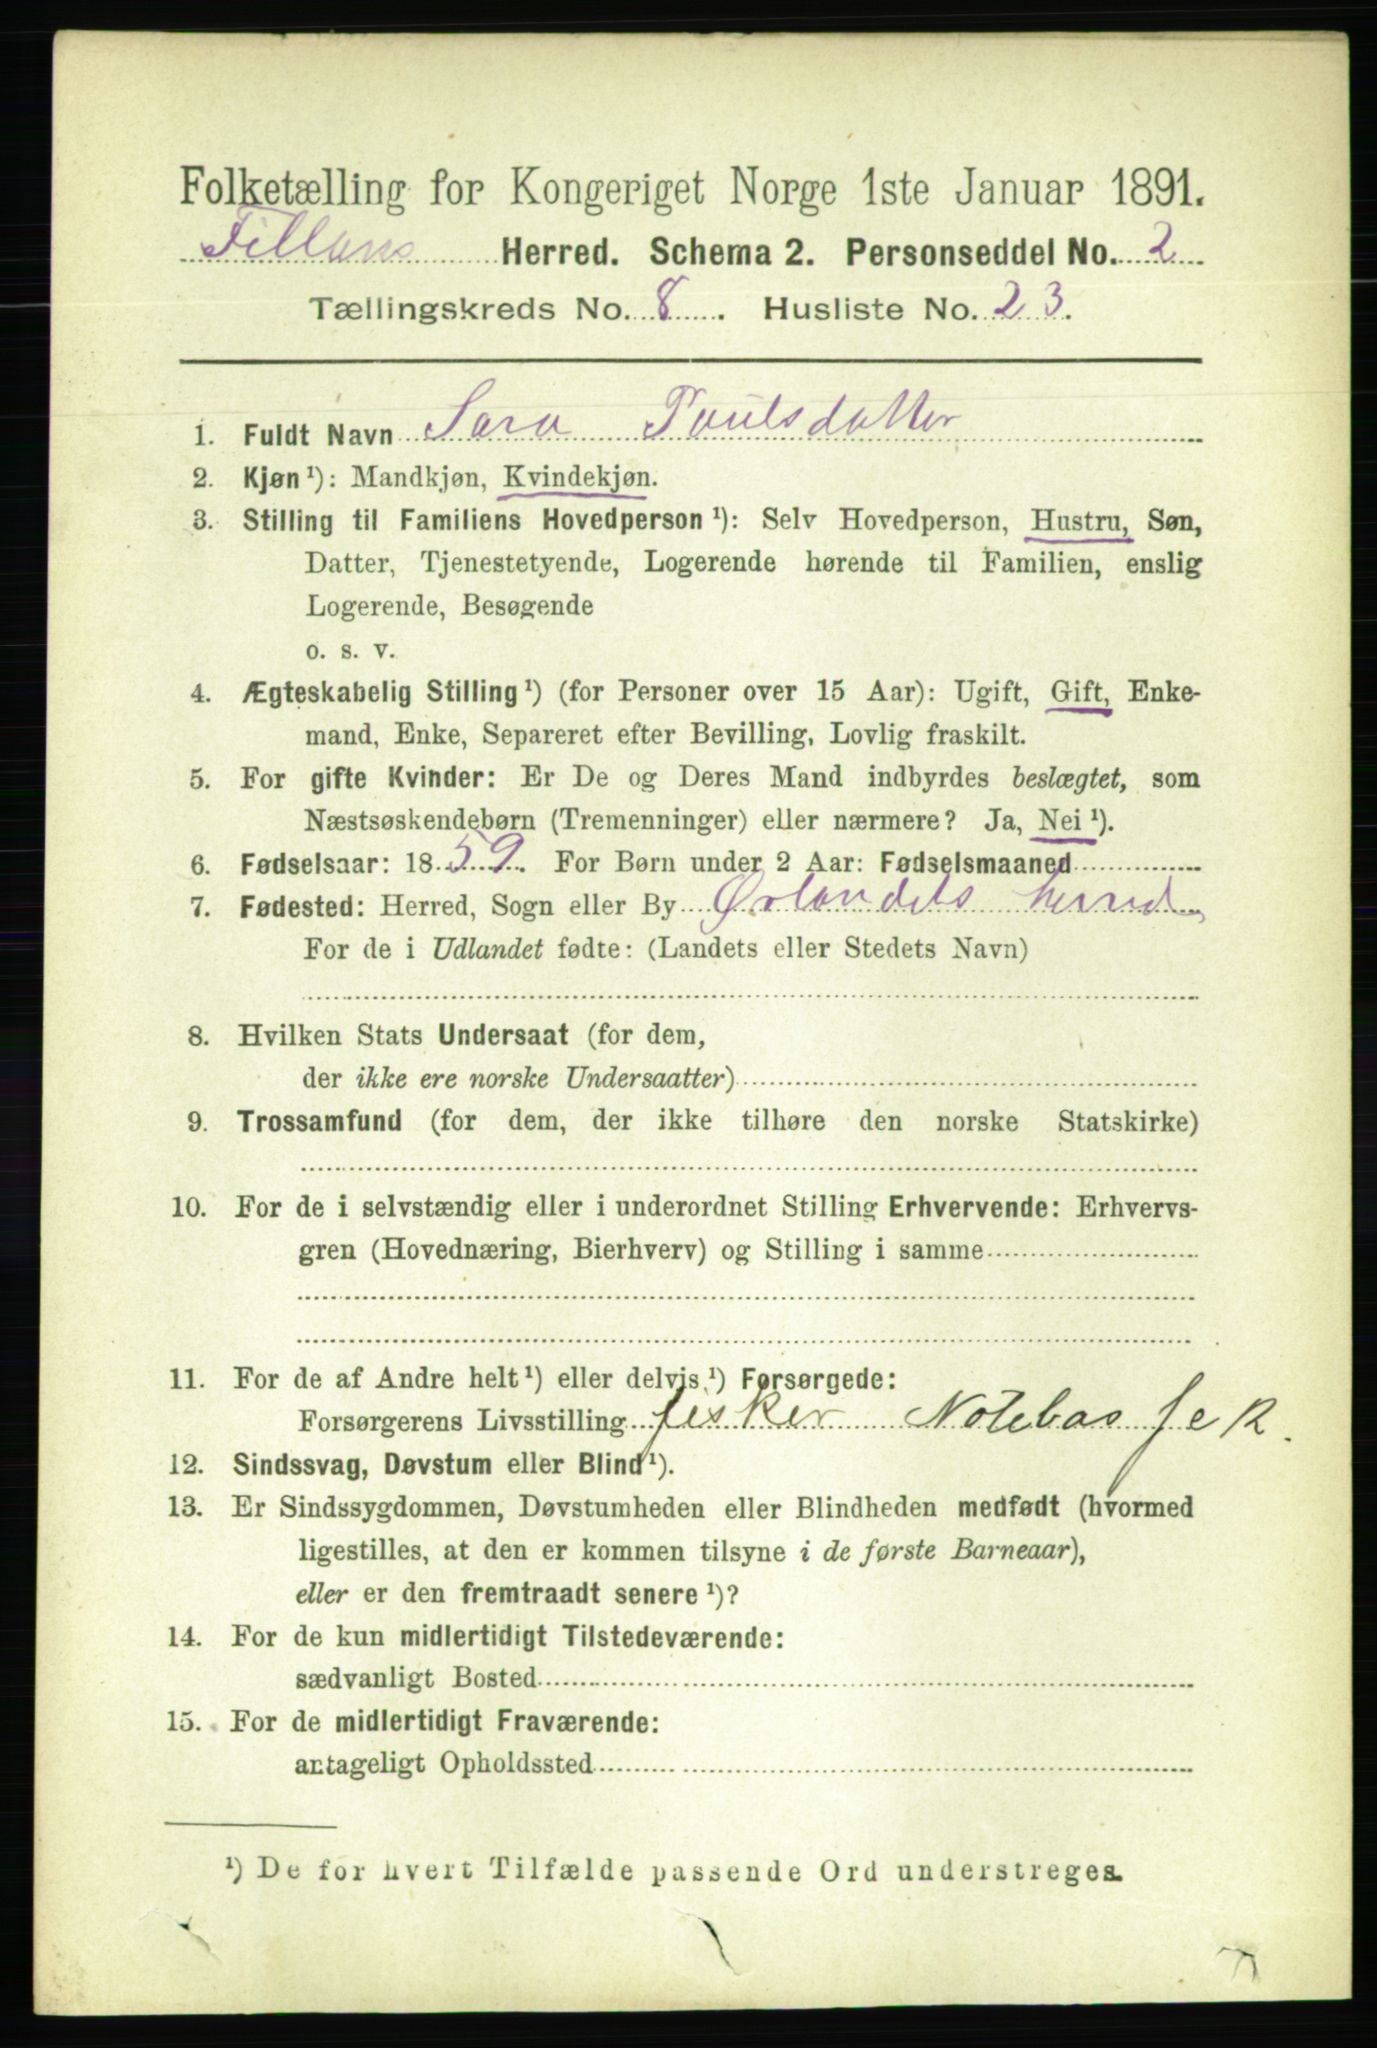 Folketælling for Kongeriget Norge 1ste Januar 1891.
Fillans Herred. Schema 2. Personseddel No. 2
Tællingskreds No. 8. Husliste No. 23.
1. Fuldt Navn Sara Paulsdatter
2. Kjøn ¹): Mandkjøn, Kvindekjøn.
3. Stilling til Familiens Hovedperson ¹): Selv Hovedperson, Hustru, Søn,
Datter, Tjenestetyende, Logerende hørende til Familien, enslig
Logerende, Besøgende
o. s. v.
4. Ægteskabelig Stilling ¹) (for Personer over 15 Aar): Ugift, Gift, Enke-
mand, Enke, Separeret efter Bevilling, Lovlig fraskilt.
5. For gifte Kvinder: Er De og Deres Mand indbyrdes beslægtet, som
Næstsøskendebørn (Tremenninger) eller nærmere? Ja, Nei ¹).
6. Fødselsaar: 1859. For Børn under 2 Aar: Fødselsmaaned
7. Fødested: Herred, Sogn eller By Ørlandets herred
For de i Udlandet fødte: (Landets eller Stedets Navn)
8. Hvilken Stats Undersaat (for dem,
der ikke ere norske Undersaatter)
9. Trossamfund (for dem, der ikke tilhøre den norske Statskirke)
10. For de i selvstændig eller i underordnet Stilling Erhvervende: Erhvervs-
gren (Hovednæring, Bierhverv) og Stilling i samme
11. For de af Andre helt ¹) eller delvis ¹) Forsørgede:
Forsørgerens Livsstilling fisker Notebas
12. Sindssvag, Døvstum eller Blind ¹).
13. Er Sindssygdommen, Døvstumheden eller Blindheden medfødt (hvormed
ligestilles, at den er kommen tilsyne i de første Barneaar),
eller er den fremtraadt senere ¹)?
14. For de kun midlertidigt Tilstedeværende:
sædvanligt Bosted
15. For de midlertidigt Fraværende:
antageligt Opholdssted
¹) De for hvert Tilfælde passende Ord understreges.